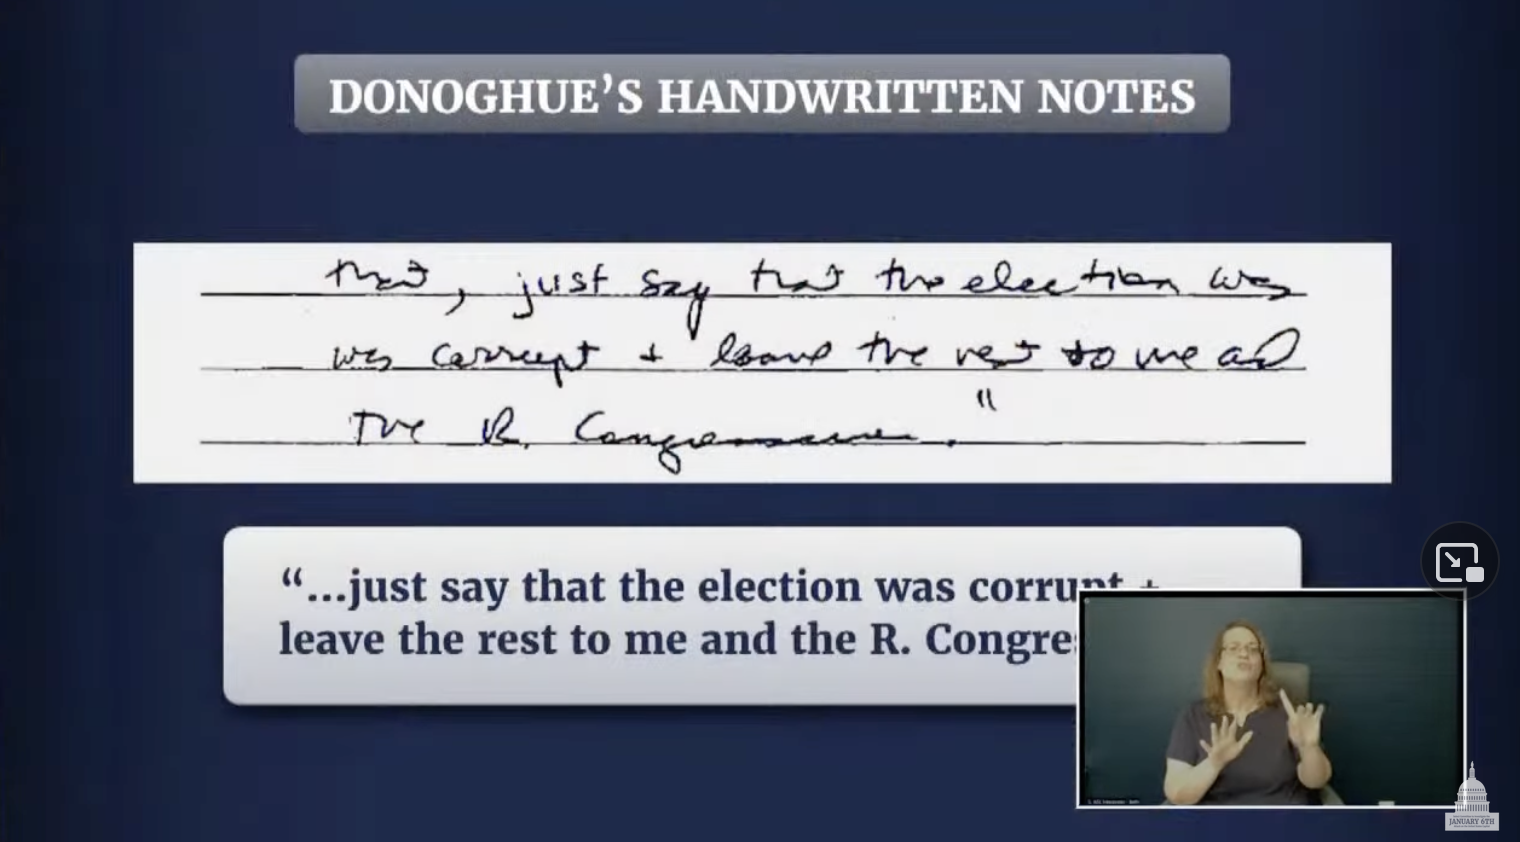 DONOGHUE’S HANDWRITTEN NOTES
that, just say that the election was
was corrupt + leave the rest to me and
The R. Congressmen."
“...just say that the election was corrupt +
leave the rest to me and the R.
JANUARY 6TH